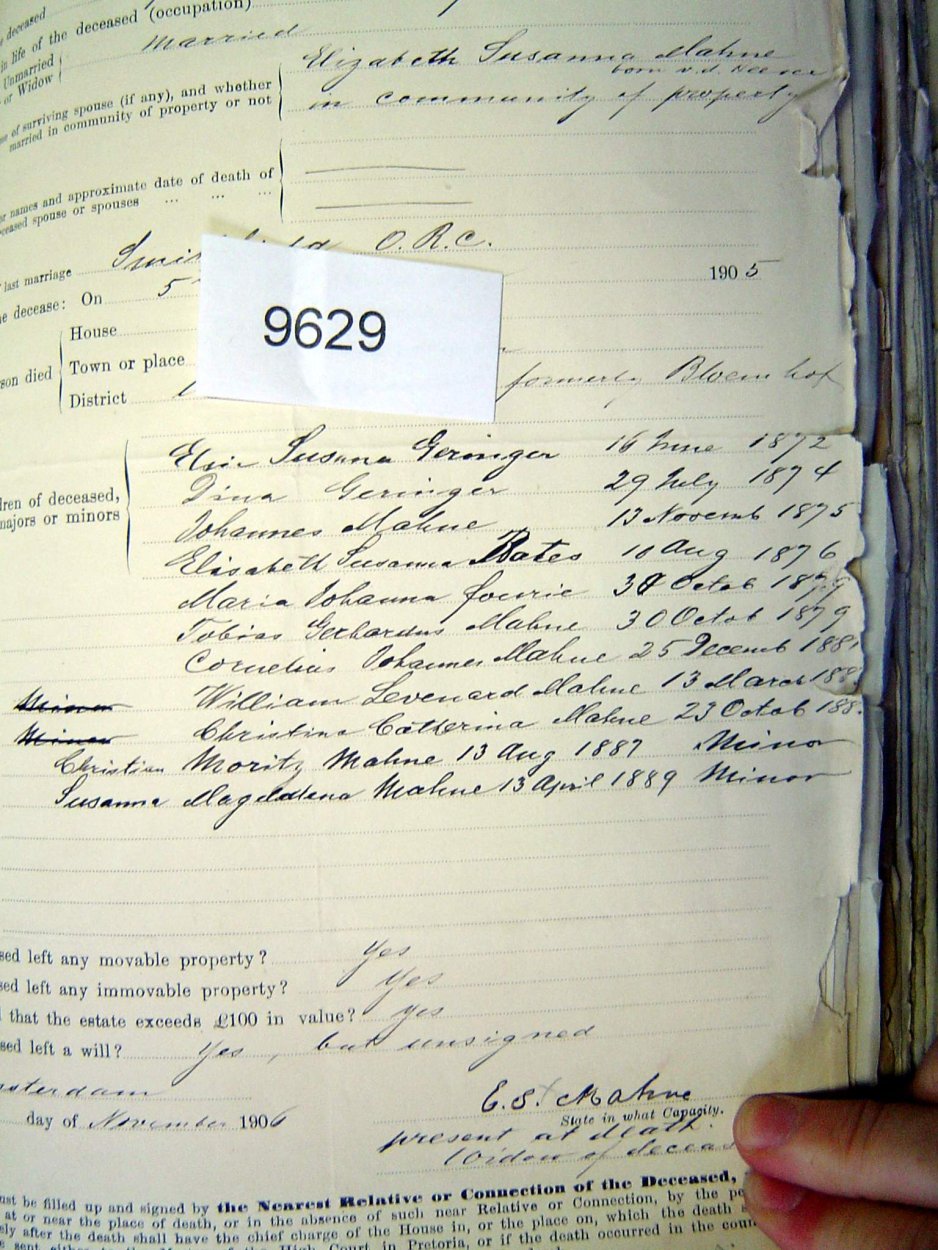 deceased
in life of the deceased (occupation)
Unmarried
or Widow married
of surviving spouse (if any), and whether Elizabeth Susanna Mahne
married in community of property or not born v.d.
in community of property
names and approximate date of death of
spouse or spouses ... ... ...
last marriage O.R.C.
decease: On 5 1905
House
son died Town or place
District formerly Bloemhof
9629
Elsie Susanna Geringer 16 June 1872
dren of deceased, Dina Geringer 29 July 1874
majors or minors Johannes Mahne 13 Novemb 1875
Elisabeth Susanna Bates 10 Aug 1876
Maria Johanna fourie Octob
Tobias Gerhardus Mahne 30 Octob 1879
Cornelius Johannes Mahne 25 Decemb 188
Minor William Levenard Mahne 13 March 188
Minor Christina Catherina Mahne 23 Octob 188
Christian Moritz Mahne 13 Aug 1887 Minor
Susanna Magdalena Mahne 13 April 1889 Minor
sed left any movable property? Yes
sed left any immovable property? Yes
that the estate exceeds £100 in value? yes
sed left a will? Yes, but unsigned
sterdam
day of November 1906 E.S. Mahne
State in what Capacity.
present at death.
Widow of deceas
ust be filled up and signed by the Nearest Relative or Connection of the Deceased,
at or near the place of death, or in the absence of such near Relative or Connection, by the pe
ely after the death shall have the chief charge of the House in, or the place on, which the death
High Court in Pretoria, or if the death occurred in the coun